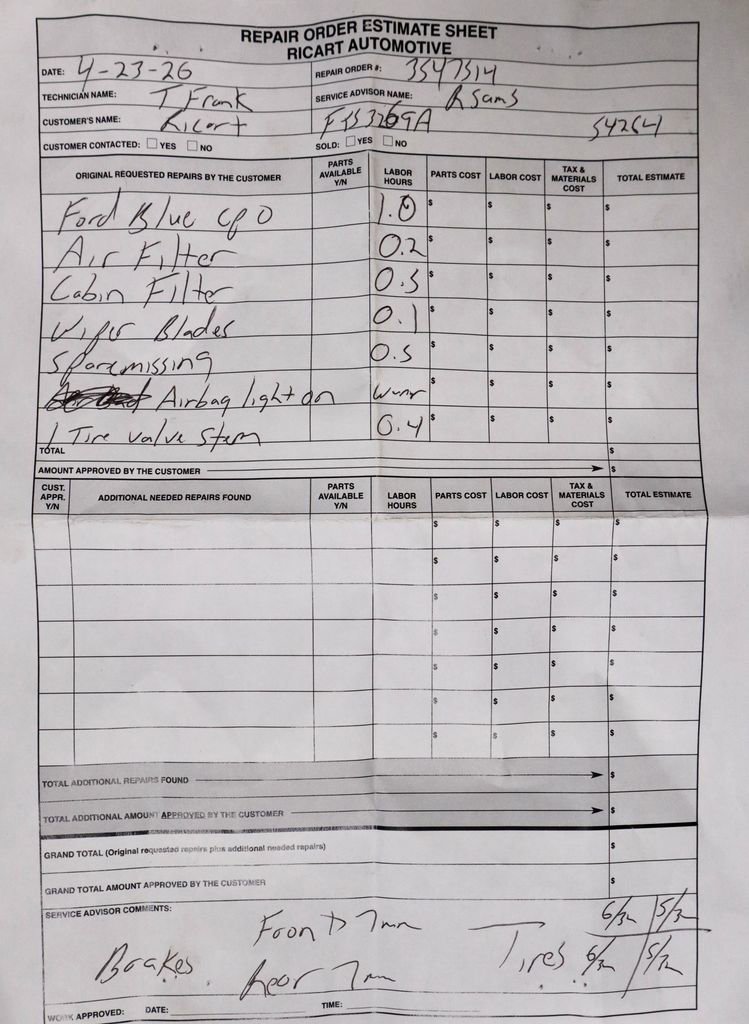 REPAIR ORDER ESTIMATE SHEET
RICART AUTOMOTIVE
DATE: 4-23-26 REPAIR ORDER #: 3547514
TECHNICIAN NAME: T Frank SERVICE ADVISOR NAME: R Sams
CUSTOMER'S NAME: Ricart FTS3269A 54264
CUSTOMER CONTACTED: YES NO SOLD: YES NO
ORIGINAL REQUESTED REPAIRS BY THE CUSTOMER PARTS AVAILABLE Y/N LABOR HOURS PARTS COST LABOR COST TAX & MATERIALS COST TOTAL ESTIMATE
Ford Blue CPO 1.0 $ $ $ $
Air Filter 0.2 $ $ $ $
Cabin Filter 0.3 $ $ $ $
Wiper Blades 0.1 $ $ $ $
Spare missing 0.5 $ $ $ $
Airbag light on $ $ $ $
1 Tire valve stem 0.4 $ $ $ $
TOTAL $
AMOUNT APPROVED BY THE CUSTOMER $
CUST. APPR. Y/N ADDITIONAL NEEDED REPAIRS FOUND PARTS AVAILABLE Y/N LABOR HOURS PARTS COST LABOR COST TAX & MATERIALS COST TOTAL ESTIMATE
$ $ $ $
$ $ $ $
$ $ $ $
$ $ $ $
$ $ $ $
$ $ $ $
$ $ $ $
TOTAL ADDITIONAL REPAIRS FOUND $
TOTAL ADDITIONAL AMOUNT APPROVED BY THE CUSTOMER $
GRAND TOTAL (Original requested repairs plus additional needed repairs) $
GRAND TOTAL AMOUNT APPROVED BY THE CUSTOMER $
SERVICE ADVISOR COMMENTS:
Front 7mm 6/32 5/32
Brakes Tires 6/32 5/32
Rear 7mm
WORK APPROVED: DATE: TIME: